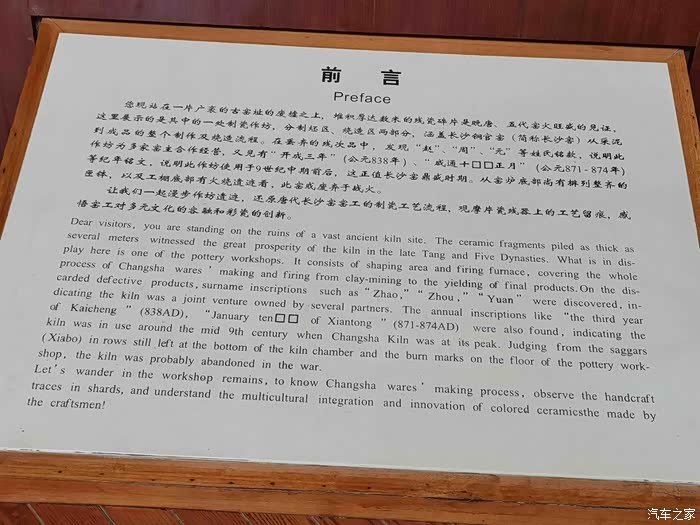 前 言
Preface
您现站在一片广袤的古窑址的废墟之上，堆积厚达数米的残瓷碎片是晚唐、五代窑火旺盛的见证，
这里展示的是其中的一处制瓷作坊，分制坯区、烧造区两部分，涵盖长沙铜官窑（简称长沙窑）从采泥
到成品的整个制作及烧造流程。在丢弃的残次品中，发现“赵”、“周”、“元”等姓氏铭款，说明此
作坊为多家窑主合作经营，又见有“开成三年”（公元838年）、“咸通十□□正月”（公元871-874年）
等纪年铭文，说明此作坊使用于9世纪中期前后，这正值长沙窑鼎盛时期。从窑炉底部尚有排列整齐的
匣钵，以及工棚底部有火烧遗迹看，此窑或废弃于战火。
让我们一起漫步作坊遗迹，还原唐代长沙窑窑工的制瓷工艺流程，观摩片瓷残器上的工艺留痕，感
悟窑工对多元文化的容融和彩瓷的创新。
Dear visitors, you are standing on the ruins of a vast ancient kiln site. The ceramic fragments piled as thick as
several meters witnessed the great prosperity of the kiln in the late Tang and Five Dynasties. What is in dis-
play here is one of the pottery workshops. It consists of shaping area and firing furnace, covering the whole
process of Changsha wares' making and firing from clay-mining to the yielding of final products. On the dis-
carded defective products, surname inscriptions such as "Zhao," "Zhou," "Yuan" were discovered, in-
dicating the kiln was a joint venture owned by several partners. The annual inscriptions like "the third year
of Kaicheng " (838AD), "January ten□□ of Xiantong "(871-874AD) were also found, indicating the
kiln was in use around the mid 9th century when Changsha Kiln was at its peak. Judging from the saggars
(Xiabo) in rows still left at the bottom of the kiln chamber and the burn marks on the floor of the pottery work-
shop, the kiln was probably abandoned in the war.
Let's wander in the workshop remains, to know Changsha wares' making process, observe the handcraft
traces in shards, and understand the multicultural integration and innovation of colored ceramicsthe made by
the craftsmen!
汽车之家